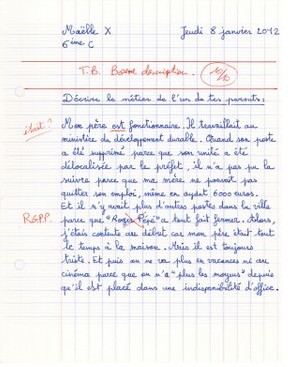 Maëlle X Jeudi 8 janvier 2012
6ème C
T.B. Bonne description. 10/10
Décrire le métier de l'un de tes parents :
était ? Mon père est fonctionnaire. Il travaillait au
ministère du développement durable. Quand son poste
a été supprimé parce que son unité a été
délocalisée par le préfet, il n'a pas pu la
suivre parce que ma mère ne pouvait pas
quitter son emploi, même en ayant 6000 euros.
Et il n'y avait plus d'autres postes dans la ville
R.G.P.P. parce que "Rogis Pépé" a tout fait fermer. Alors,
j'étais contente au début car mon père était tout
le temps à la maison. Mais il est toujours
triste. Et puis on ne va plus en vacances ni au
cinéma parce que on n'a "plus les moyens" depuis
qu'il est placé dans une indisponibilité d'office.